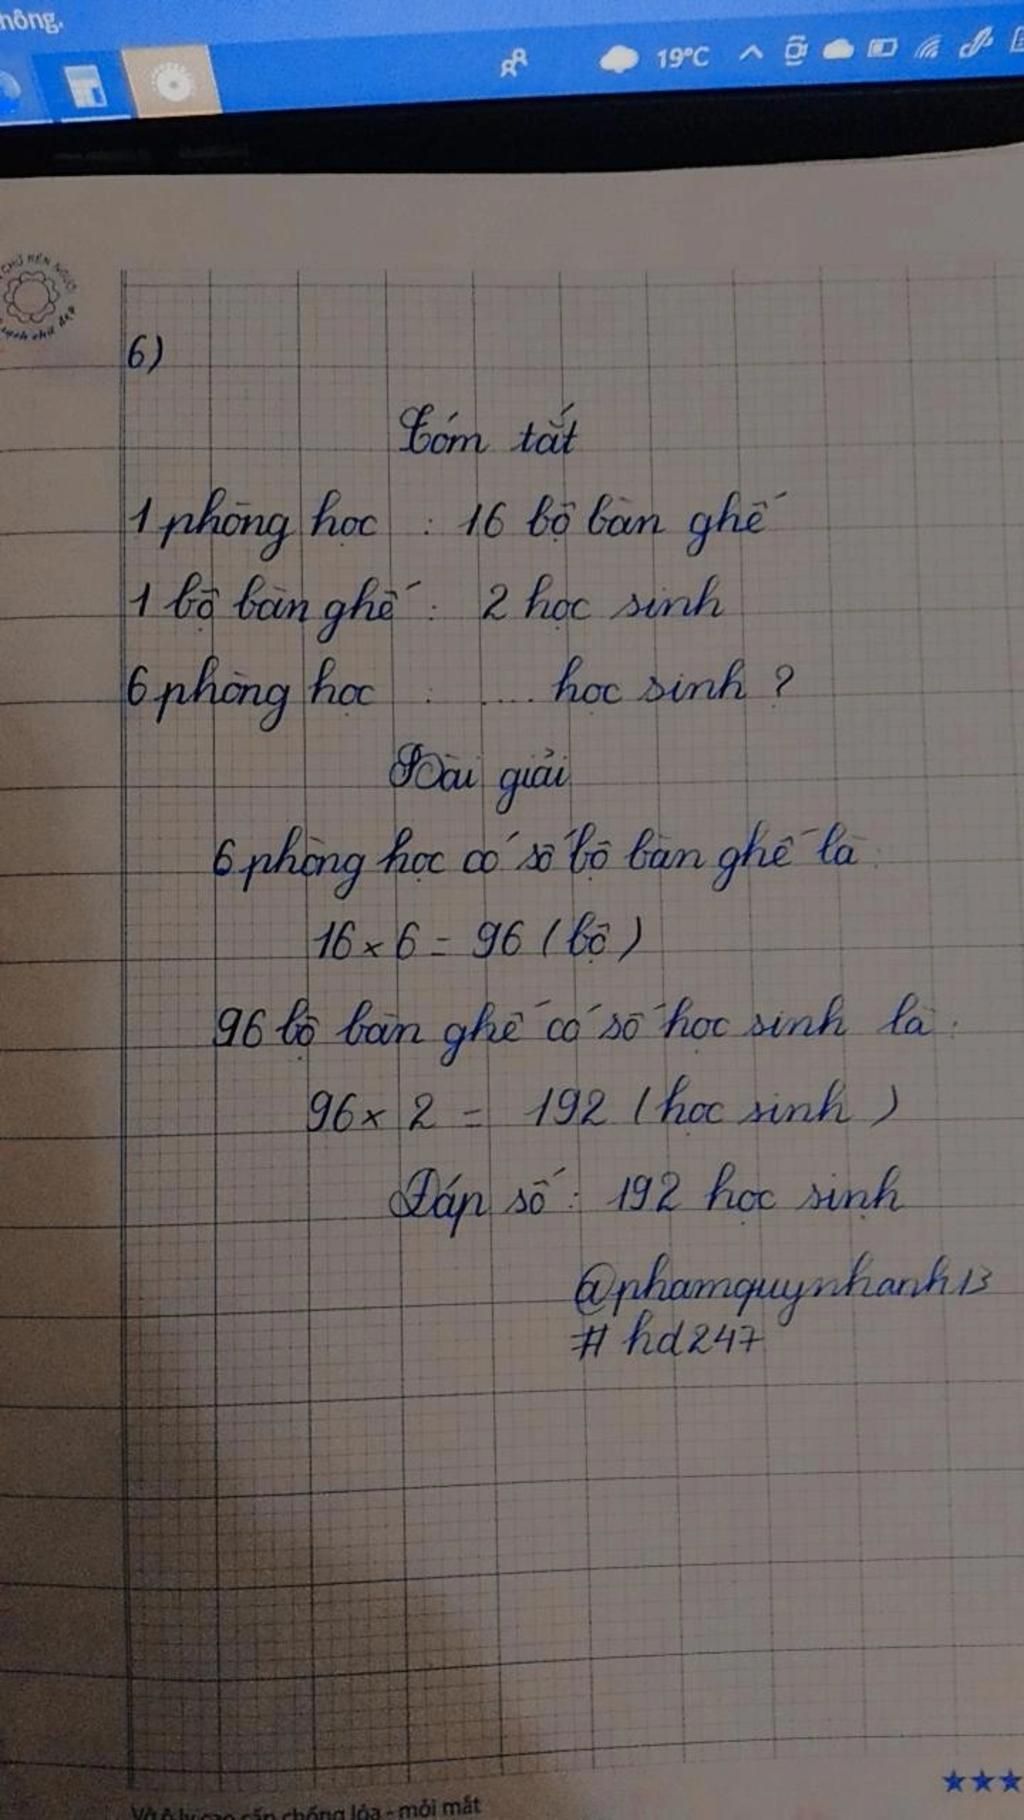 hông.
19°C
6)
Tóm tắt
1 phòng học : 16 bộ bàn ghế
1 bộ bàn ghế : 2 học sinh
6 phòng học : .... học sinh ?
Bài giải
6 phòng học có số bộ bàn ghế là :
16 × 6 = 96 (bộ)
96 bộ bàn ghế có số học sinh là :
96 × 2 = 192 (học sinh)
Đáp số : 192 học sinh
@phamquynhanh13
# hd247
Vở ô ly cao cấp chống lóa - mỏi mắt